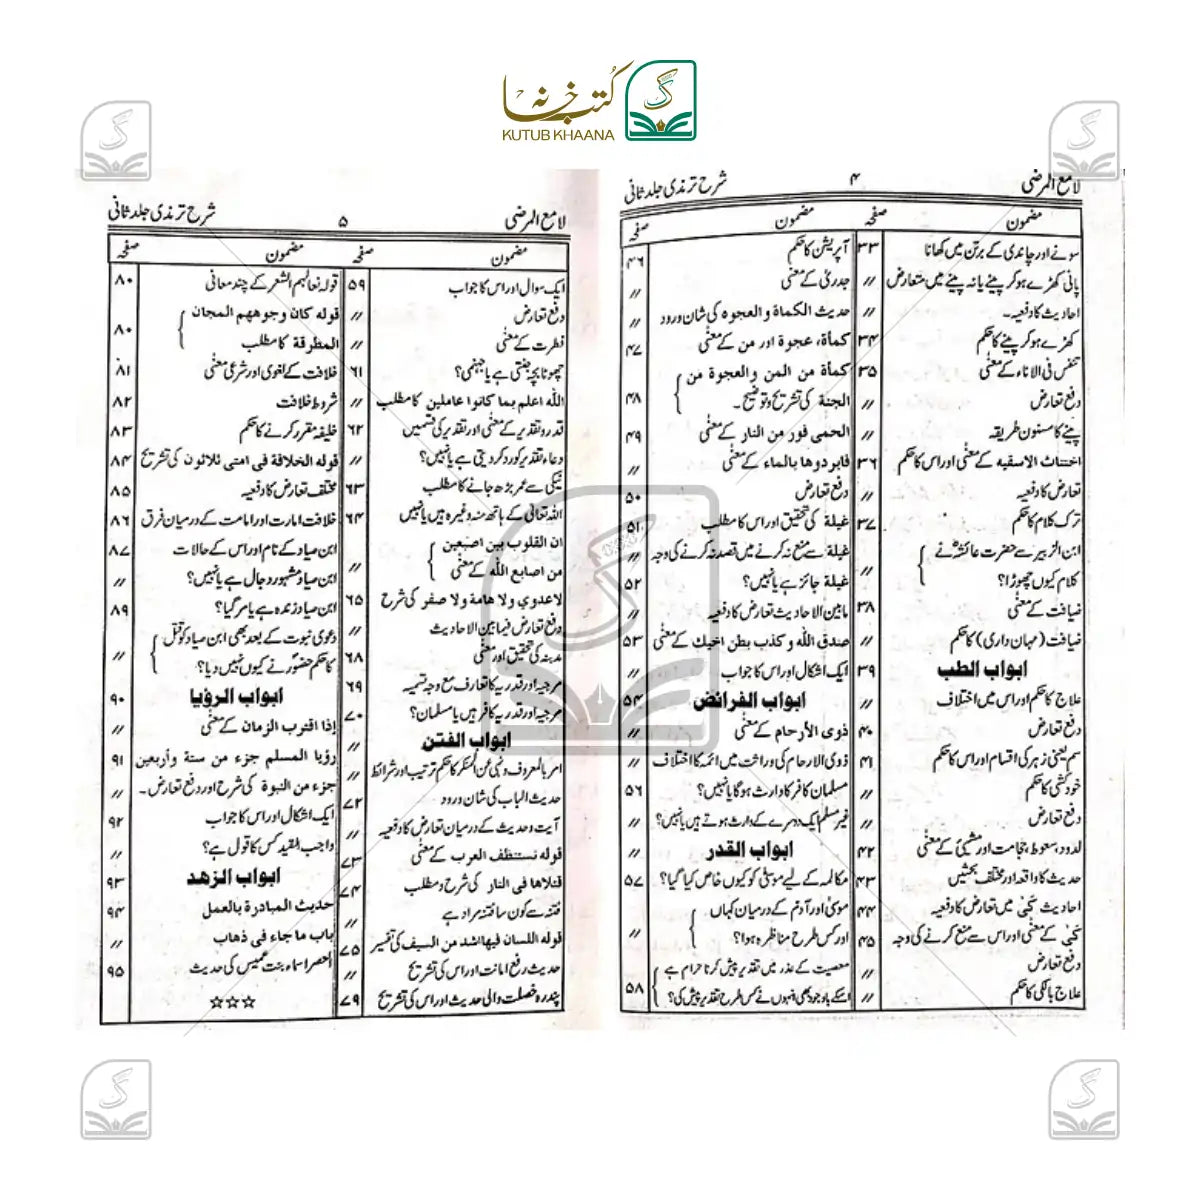 کتب خانہ
KUTUB KHAANA
لامع المرضی
۴
شرح ترمذی جلد ثانی
مضمون
صفحہ
سونے اور چاندی کے برتن میں کھانا ۳۳
پانی کھڑے ہو کر پینے یا نہ پینے میں متعارض 〃
احادیث کا دفعیہ۔
کھڑے ہو کر پینے کا حکم ۳۴
تنفس فی الاناء کے معنٰی ۳۵
دفع تعارض 〃
پینے کا مسنون طریقہ 〃
اختناث الاسقیہ کے معنٰی اور اس کا حکم ۳۶
تعارض کا دفعیہ 〃
ترک کلام کا حکم ۳۷
ابن الزبیر سے حضرت عائشہؓ نے
کلام کیوں چھوڑا؟ 〃
ضیافت کے معنٰی ۳۸
ضیافت (مہمان داری) کا حکم 〃
ابواب الطب ۳۹
علاج کا حکم اور اس میں اختلاف 〃
دفع تعارض ۴۰
سم یعنی زہر کی اقسام اور اس کا حکم ۴۱
خودکشی کا حکم 〃
دفع تعارض 〃
لدود سعوط، حجامت اور مشی کے معنٰی ۴۲
حدیث کا واقعہ اور مختلف بحثیں ۴۳
احادیث کَیّ میں تعارض کا دفعیہ ۴۴
کَیّ کے معنٰی اور اس سے منع کرنے کی وجہ ۴۵
دفع تعارض 〃
علاج بالکی کا حکم 〃
مضمون
صفحہ
آپریشن کا حکم ۴۶
جدری کے معنٰی 〃
حدیث الکماة و العجوه کی شان ورود 〃
کمأة، عجوة اور من کے معنٰی ۴۷
کمأة من المن والعجوة من
الجنة کی تشریح و توضیح۔ ۴۸
الحمٰی فور من النار کے معنٰی ۴۹
فابردوها بالماء کے معنٰی 〃
دفع تعارض ۵۰
غیلة کی تحقیق اور اس کا مطلب ۵۱
غیلة سے منع نہ کرنے میں قصد نہ کرنے کی وجہ 〃
غیلة جائز ہے یا نہیں؟ ۵۲
مابین الاحادیث تعارض کا دفعیہ 〃
صدق اللّٰه و کذب بطن اخیك کے معنٰی ۵۳
ایک اشکال اور اس کا جواب 〃
ابواب الفرائض ۵۴
ذوی الأرحام کے معنٰی 〃
ذوی الارحام کی وراثت میں ائمہ کا اختلاف
مسلمان کافر کا وارث ہوگا یا نہیں؟ ۵۶
غیر مسلم ایک دوسرے کے وارث ہوتے ہیں یا نہیں؟ 〃
ابواب القدر 〃
مکالمہ کے لیے موسیٰؑ کو کیوں خاص کیا گیا؟ ۵۷
موسیٰؑ اور آدمؑ کے درمیان کہاں
اور کس طرح مناظرہ ہوا؟ 〃
معصیت کے عذر میں تقدیر پیش کرنا حرام ہے
اسکے باوجود بھی انہوں نے کس طرح تقدیر پیش کی؟ ۵۸
لامع المرضی
۵
شرح ترمذی جلد ثانی
مضمون
صفحہ
ایک سوال اور اس کا جواب ۵۹
دفع تعارض 〃
فطرت کے معنٰی 〃
چھوٹا بچہ جنتی ہے یا جہنمی؟ ۶۱
اللّٰه اعلم بما کانوا عاملین کا مطلب 〃
قدر و تقدیر کے معنٰی اور تقدیر کی قسمیں ۶۲
دعاء تقدیر کو رد کر دیتی ہے یا نہیں؟ 〃
نیکی سے عمر بڑھ جانے کا مطلب ۶۳
اللہ تعالٰی کے ہاتھ منہ وغیرہ ہیں یا نہیں ۶۴
ان القلوب بین اصبعین
من اصابع اللّٰه کے معنٰی 〃
لاعدوی ولا ھامة ولا صفر کی شرح ۶۵
دفع تعارض فیما بین الاحادیث 〃
مدینہ کی تحقیق اور معنٰی ۶۸
مرجیہ اور قدریہ کا تعارف مع وجہ تسمیہ ۶۹
مرجیہ اور قدریہ کافر ہیں یا مسلمان؟ ۷۰
ابواب الفتن 〃
امر بالمعروف ونہی عن المنکر کا حکم ترتیب اور شرائط 〃
حدیث الباب کی شان ورود ۷۲
آیت و حدیث کے درمیان تعارض کا دفعیہ 〃
قوله تستنظف العرب کے معنٰی ۷۳
قتلاها فی النار کی شرح و مطلب ۷۴
فتنہ سے کون سا فتنہ مراد ہے 〃
قوله اللسان فیها اشد من السیف کی تفسیر ۷۵
حدیث رفع امانت اور اس کی تشریح 〃
پندرہ خصلت والی حدیث اور اس کی تشریح ۷۹
مضمون
صفحہ
قوله نعالهم الشعر کے چند معانی ۸۰
قوله کان وجوههم المجان
المطرقة کا مطلب ۸۰
خلافت کے لغوی اور شرعی معنٰی ۸۱
شروط خلافت ۸۲
خلیفہ مقرر کرنے کا حکم ۸۳
قوله الخلافة فی امتی ثلاثون کی تشریح ۸۴
مختلف تعارض کا دفعیہ ۸۵
خلافت امارت اور امامت کے درمیان فرق ۸۶
ابن صیاد کے نام اور اس کے حالات ۸۷
ابن صیاد مشہور دجال ہے یا نہیں؟ 〃
ابن صیاد زندہ ہے یا مر گیا؟ ۸۹
دعوی نبوت کے بعد بھی ابن صیاد کو قتل
کا حکم حضورؐ نے کیوں نہیں دیا؟ 〃
ابواب الرؤیا ۹۰
إذا اقترب الزمان کے معنٰی 〃
رؤیا المسلم جزء من ستة وأربعین ۹۱
جزء من النبوة کی شرح اور دفع تعارض۔ 〃
ایک اشکال اور اس کا جواب ۹۲
واجب المقید کس کا قول ہے؟ 〃
ابواب الزهد ۹۳
حدیث المبادرة بالعمل ۹۴
باب ما جاء فی ذهاب 〃
أحصر اسماء بنت عمیس کی حدیث ۹۵
☆☆☆